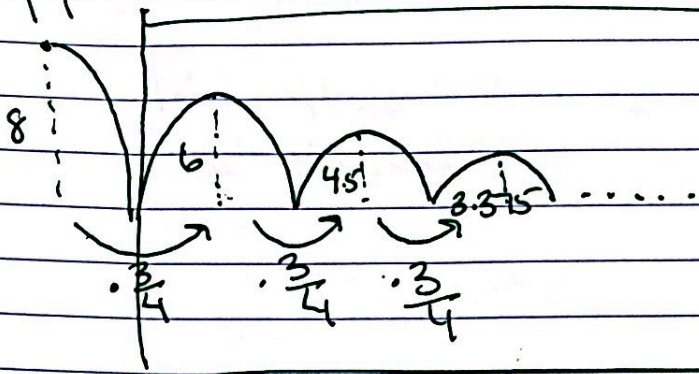 8
6
4.5
3.375 ......
· 3/4
· 3/4
· 3/4